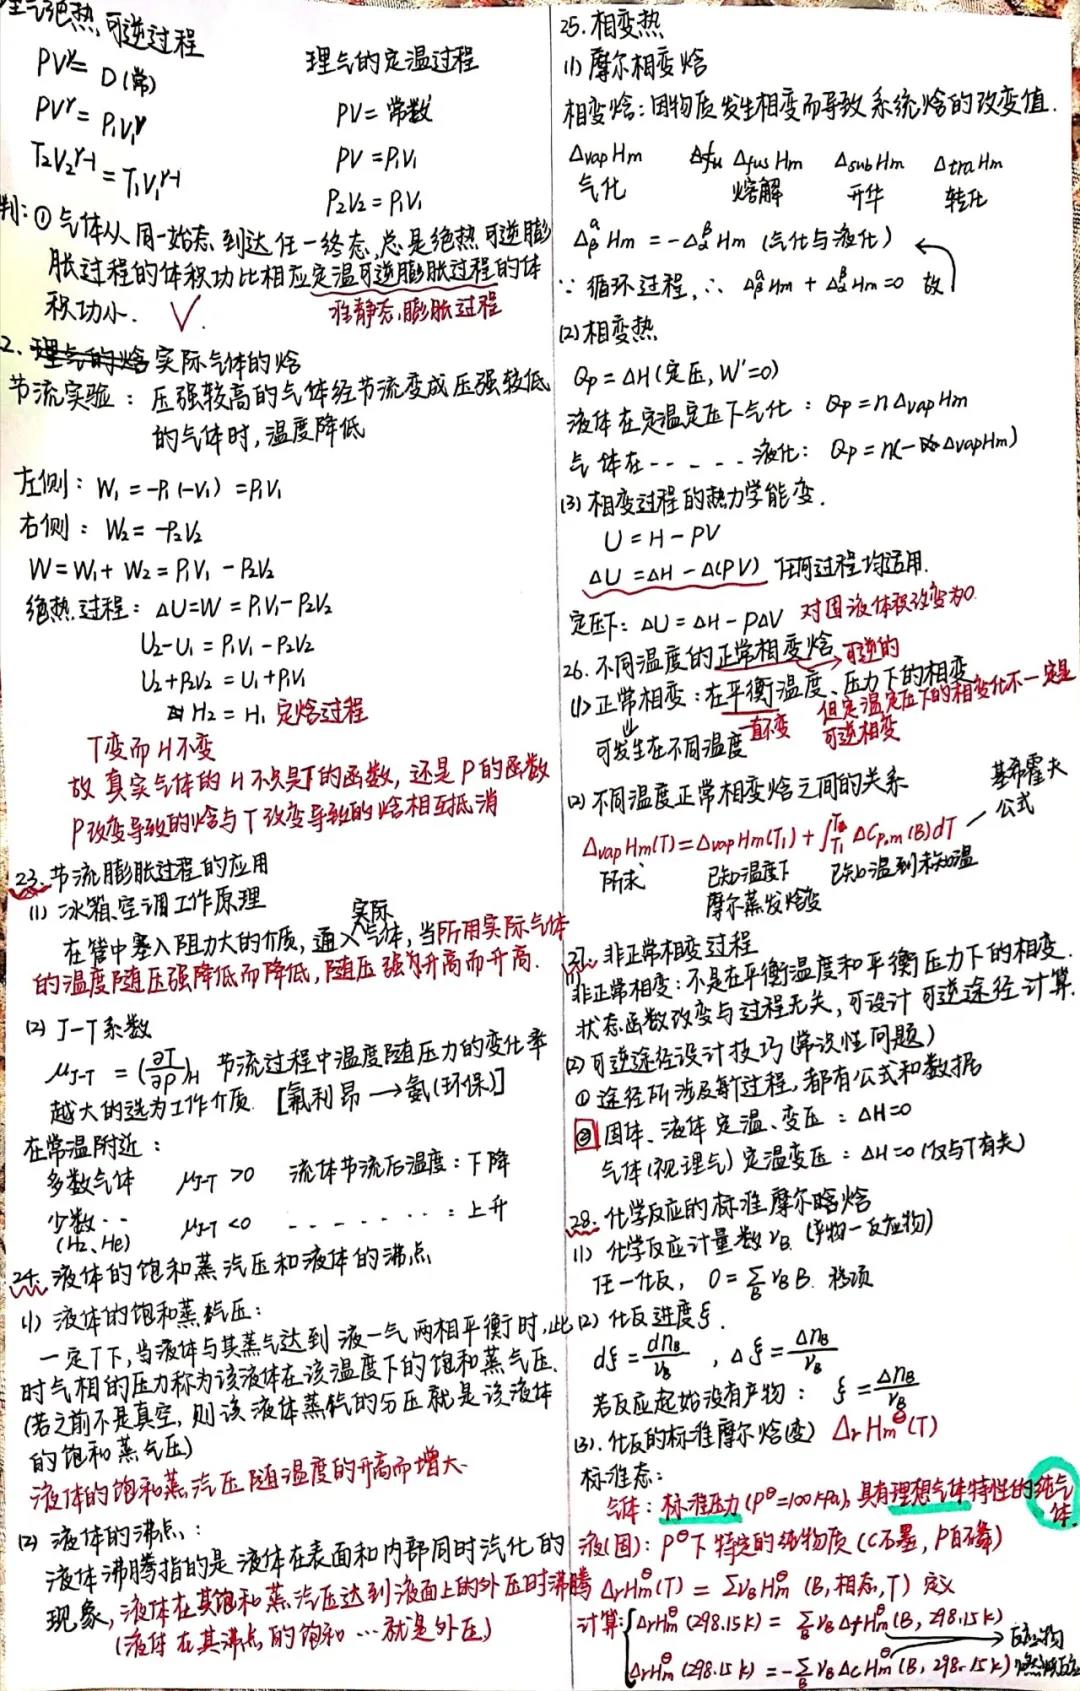 理气绝热,可逆过程
PV^γ = D(常)
PV^γ = P₁V₁^γ
T₂V₂^γ-1 = T₁V₁^γ-1
理气的定温过程
PV = 常数
PV = P₁V₁
P₂V₂ = P₁V₁
判:① 气体从同一始态到达任一终态,总是绝热可逆膨
胀过程的体积功比相应定温可逆膨胀过程的体
积功小. √.
准静态膨胀过程
2. 理气的焓 实际气体的焓
节流实验: 压强较高的气体经节流变成压强较低
的气体时,温度降低
左侧: W₁ = -P₁(-V₁) = P₁V₁
右侧: W₂ = -P₂V₂
W = W₁ + W₂ = P₁V₁ - P₂V₂
绝热过程: ΔU=W = P₁V₁-P₂V₂
U₂-U₁ = P₁V₁-P₂V₂
U₂+P₂V₂ = U₁+P₁V₁
H₂ = H₁ 定焓过程
T变而H不变
故真实气体的H不只是T的函数,还是P的函数
P改变导致的焓与T改变导致的焓相互抵消
23. 节流膨胀过程的应用
(1) 冰箱、空调工作原理
实际
在管中塞入阻力大的介质,通入气体,当所用实际气体
的温度随压强降低而降低,随压强升高而升高.
(2) J-T系数
μJ-T = (∂T/∂P)H 节流过程中温度随压力的变化率
越大的选为工作介质. [氟利昂→氨(环保)]
在常温附近:
多数气体 μJ-T >0 流体节流后温度:下降
少数‥ μJ-T <0 - - - - - - - -:上升
(H₂、He)
24. 液体的饱和蒸汽压和液体的沸点
(1) 液体的饱和蒸气压:
一定T下,当液体与其蒸气达到液一气两相平衡时,此
时气相的压力称为该液体在该温度下的饱和蒸气压.
(若之前不是真空,则该液体蒸气的分压就是该液体
的饱和蒸气压)
液体的饱和蒸汽压随温度的升高而增大.
(2) 液体的沸点:
液体沸腾指的是液体在表面和内部同时汽化的
现象,液体在其饱和蒸汽压达到液面上的外压时沸腾
(液体在其沸点的饱和…就是外压)
25. 相变热
(1) 摩尔相变焓
相变焓:因物质发生相变而导致系统焓的改变值.
ΔvapHm ΔfusHm ΔsubHm ΔtraHm
气化 熔解 升华 转化
Δβ^αHm = -Δα^βHm (气化与液化)
∵ 循环过程,∴ Δβ^αHm + Δα^βHm=0 故
(2) 相变热
Qp = ΔH(定压,W'=0)
液体在定温定压下气化: Qp = nΔvapHm
气体在- - - - -液化: Qp = n(-ΔvapHm)
(3) 相变过程的热力学能变.
U = H - PV
ΔU = ΔH - Δ(PV) 任何过程均适用.
定压下: ΔU = ΔH - PΔV 对固液体积改变为0.
26. 不同温度的正常相变焓 → 可逆的
(1) 正常相变:在平衡温度、压力下的相变
可发生在不同温度 一直不变 但定温定压下的相变化不一定是
可逆相变
(2) 不同温度正常相变焓之间的关系
基希霍夫
公式
ΔvapHm(T)=ΔvapHm(T₁)+∫ΔCp,m(B)dT
所求 已知温度下 已知温到未知温
摩尔蒸发焓变
27. 非正常相变过程
(1) 非正常相变:不是在平衡温度和平衡压力下的相变.
状态函数改变与过程无关,可设计可逆途径计算.
(2) 可逆途径设计技巧(常识性问题)
① 途径所涉及每个过程,都有公式和数据
② 固体、液体定温、变压: ΔH=0
气体(视理气)定温变压: ΔH=0 (仅与T有关)
28. 化学反应的标准摩尔焓
(1) 化学反应计量数νB (产物一反应物)
任一化反, 0=∑B νB B. 移项
(2) 化反进度ξ.
dξ = dnB/νB , Δξ = ΔnB/νB
若反应起始没有产物: ξ = ΔnB/νB
(3). 化反的标准摩尔焓(变) ΔrHm^⊖(T)
标准态:
气体:标准压力(P^⊖=100kPa),具有理想气体特性的纯气体.
液(固): P^⊖下特定的纯物质(C石墨,P白磷)
ΔrHm^⊖(T) = ∑νBHm^⊖(B,相态,T) 定义
计算: ΔrHm^⊖(298.15K) = ∑B νBΔfHm^⊖(B, 298.15K)
ΔrHm^⊖(298.15K) = -∑B νBΔcHm^⊖(B, 298.15K)